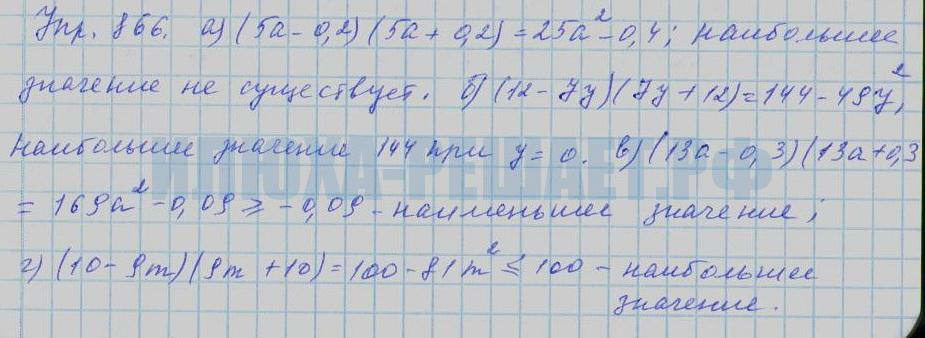 Упр. 866. а) (5a - 0,2) (5a + 0,2) = 25a² - 0,4; наибольшее
значение не существует. б) (12 - 7y) (7y + 12) = 144 - 49y²,
наибольшее значение 144 при y = 0. в) (13a - 0,3) (13a + 0,3
= 169a² - 0,09 ⩾ -0,09 - наименьшее значение;
г) (10 - 9m) (9m + 10) = 100 - 81m² ⩽ 100 - наибольшее
значение.
ИЛЮХА-РЕШАЕТ.РФ